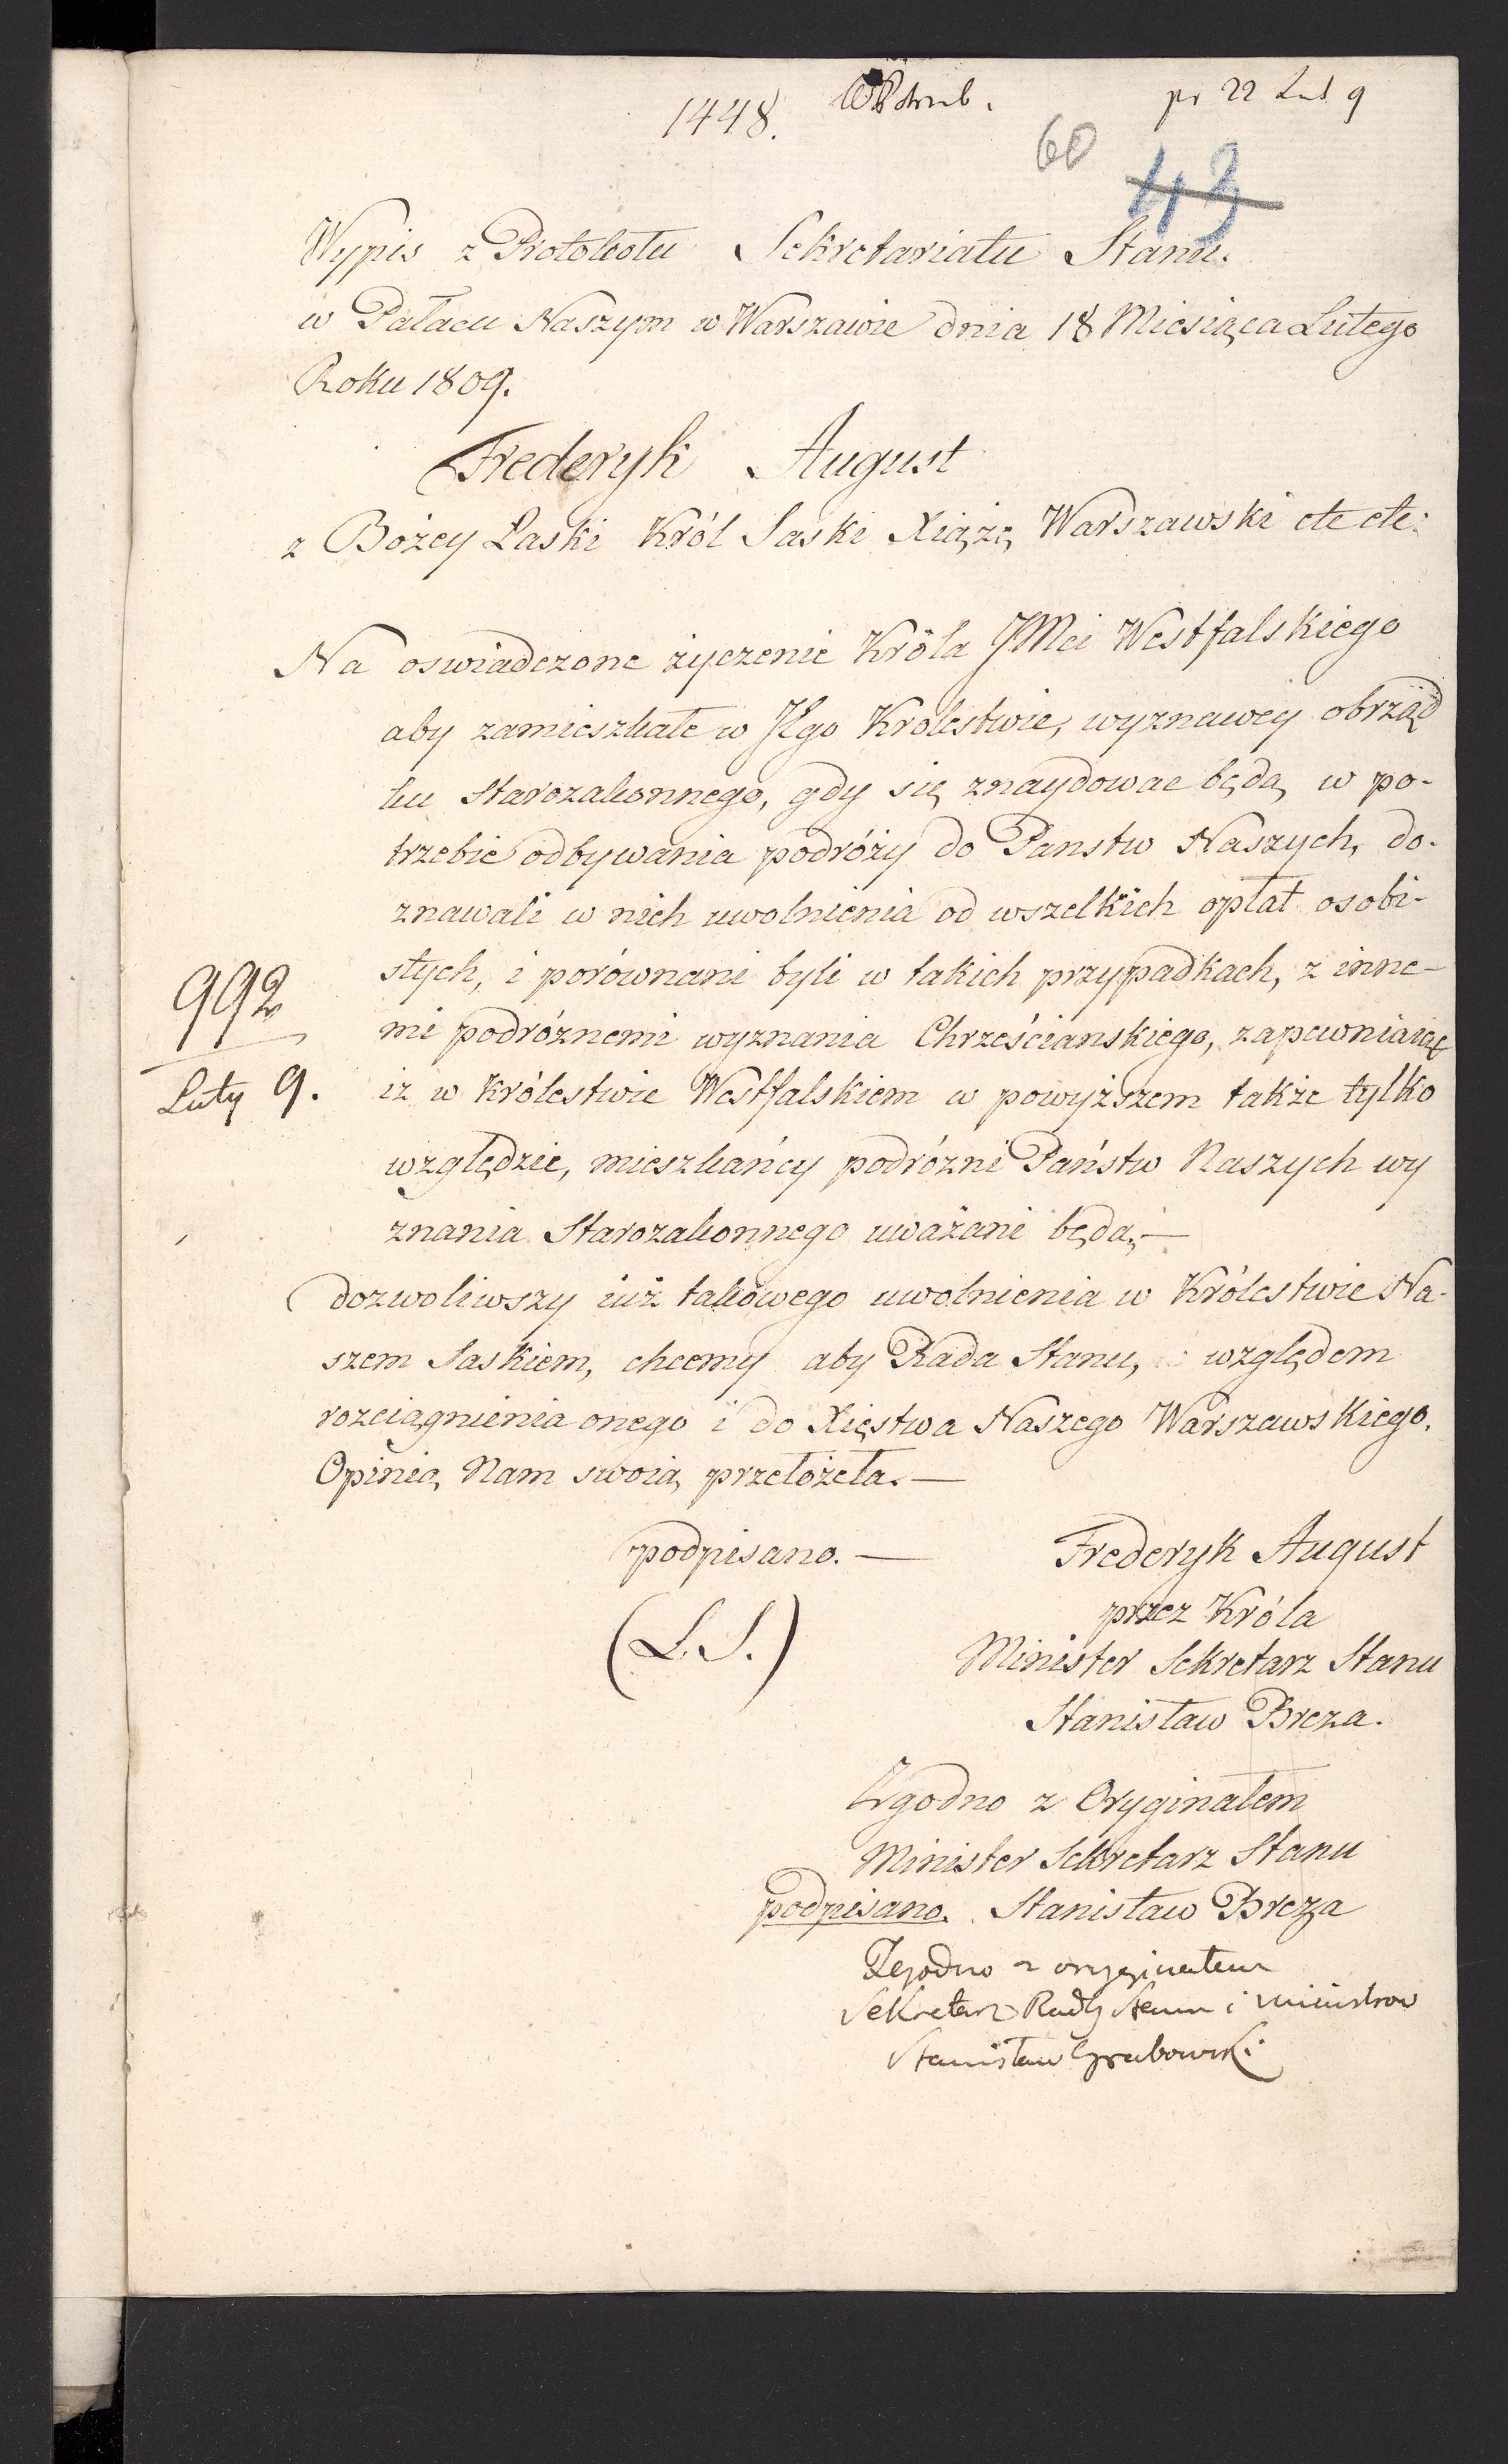 1448.
pr 22 Lut 9
60
43
Wypis z Protokołu Sekretariatu Stanu.
w Pałacu Naszym w Warszawie dnia 18 Miesiąca Lutego
Roku 1809.
Frederyk August
z Bożey Łaski Król Saski Xiążę Warszawski etc etc:
Na oswiadczone życzenie Króla JMci Westfalskiego
aby zamieszkałe w JEgo Krolestwie, wyznawcy obrząd
ku Starozakonnego, gdy się znaydowac będą w po-
trzebie odbywania podróży do Panstw Naszych, do-
znawali w nich uwolnienia od wszelkich opłat osobi-
stych, i porównani byli w takich przypadkach, z inne-
mi podróznemi wyznania Chrześcianskiego, zapewniaiąc
992
iz w Królestwie Westfalskiem w powyższem także tylko
Luty 9.
względzie, mieszkańcy podrózni Państw Naszych wy
znania Starozakonnego uważani będą,—
dozwoliwszy iuż takowego uwolnienia w Królestwie Na-
szem Saskiem, chcemy aby Rada Stanu, względem
rozciągnienia onego i do Xięstwa Naszego Warszawskiego.
Opinią Nam swoią przełożeła.—
podpisano.—
Frederyk August
przez Króla
(L.S.)
Minister Sekretarz Stanu
Stanisław Breza.
Zgodno z Oryginałem
Minister Sekretarz Stanu
podpisano. Stanisław Breza
Zgodno z oryginałem
Sekretarz Rady Stanu i Ministrow
Stanisław Grabowski